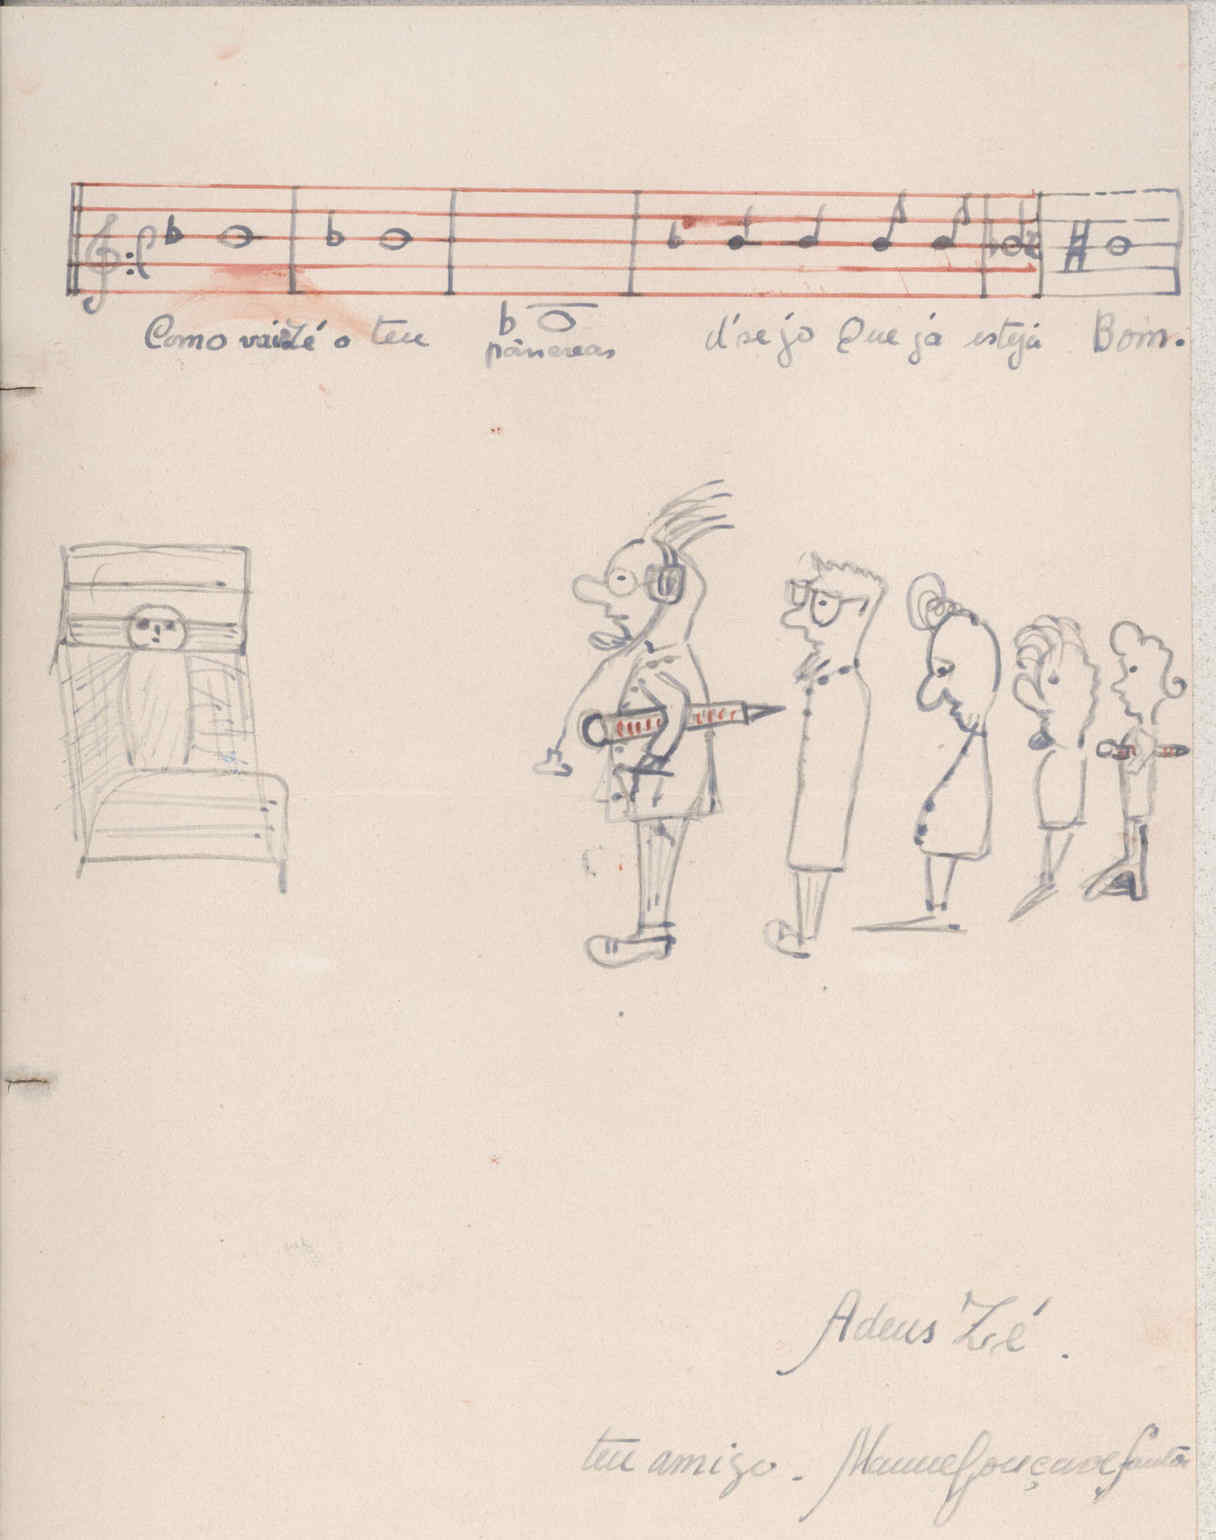 Como vais Zé o teu pâncreas d'sejo Que já esteja Bom.
Adeus Zé.
teu amigo. Manuel Gonçalves